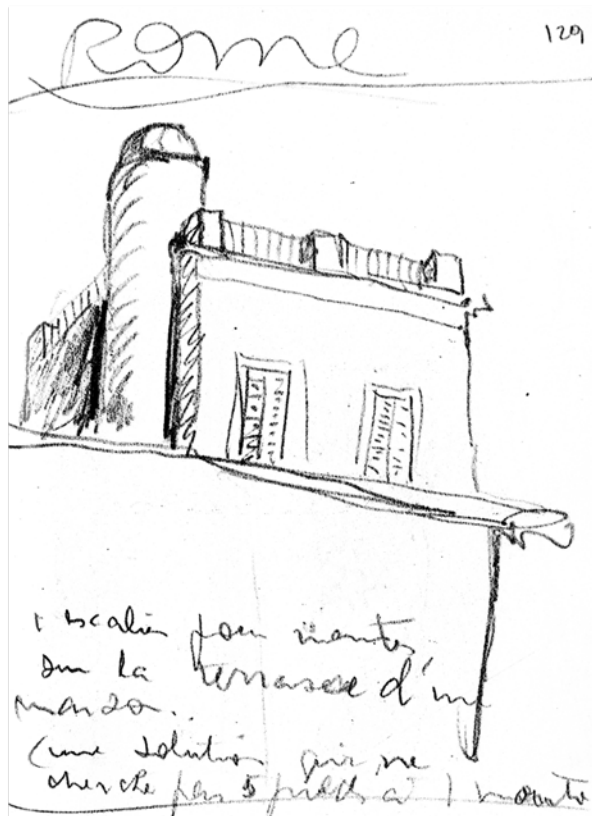 Rome
129
1 escalier pour monter
sur la terrasse d'une
maison.
(une solution qui ne
cherche pas 5 pieds à 1 mouton